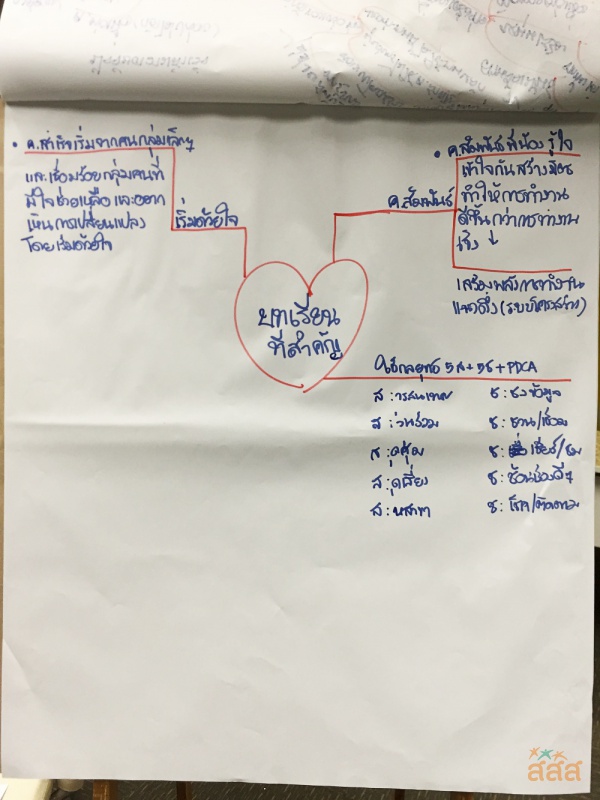 • ค.สำเร็จเริ่มจากคนกลุ่มเล็กๆ
และเชื่อมร้อยกลุ่มคนที่
มีใจช่วยเหลือ และอยาก
เห็นการเปลี่ยนแปลง
โดยเริ่มด้วยใจ
เริ่มด้วยใจ
บทเรียน
ที่สำคัญ
ค.สัมพันธ์
• ค.สัมพันธ์ พี่น้อง รู้ใจ
เข้าใจกัน สร้างมิตร
ทำให้การทำงาน
ดีขึ้นกว่าการทำงาน
เชิง ↓
เสริมพลังการทำงาน
แนวดิ่ง (ระบบโครงสร้าง)
ใช้กลยุทธ์ 5 ส + 5ช + PDCA
ส : ารสนเทศ
ส : ่วนร่วม
ส :
ส : ุ่มเสี่ยง
ส : หสาขา
ช : ชงข้อมูล
ช : ชวน/เชื่อม
ช : เชียร์/ชม
ช : ช้อนของดีๆ
ช : เช็ค/ติดตาม
สสส